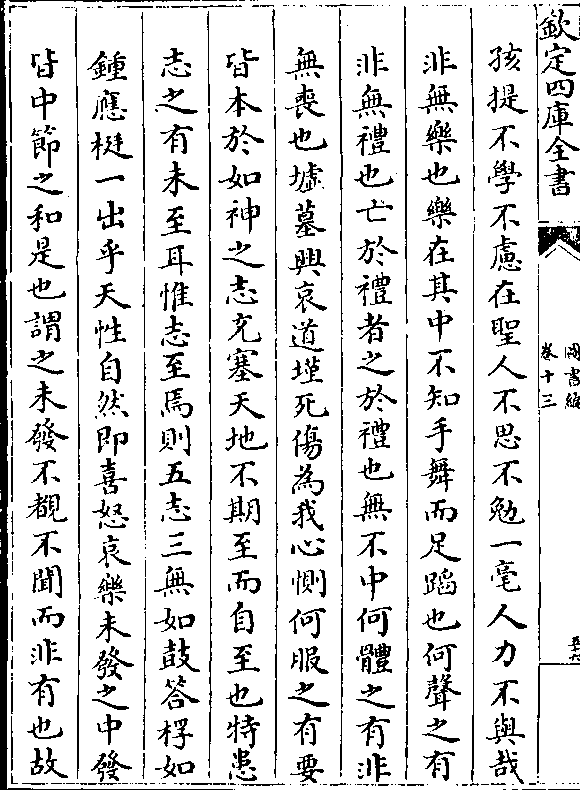 欽定四庫全書
圖書編
卷十三
孩提不學不慮在聖人不思不勉一毫人力不與哉
非無樂也樂在其中不知手舞而足蹈也何聲之有
非無禮也亡於禮者之於禮也無不中何體之有非
無喪也墟墓興哀道墐死傷為我心惻何服之有要
皆本於如神之志充塞天地不期至而自至也特患
志之有未至耳惟志至焉則五志三無如鼓答桴如
鍾應梃一出乎天性自然即喜怒哀樂未發之中發
皆中節之和是也謂之未發不覩不聞而非有也故